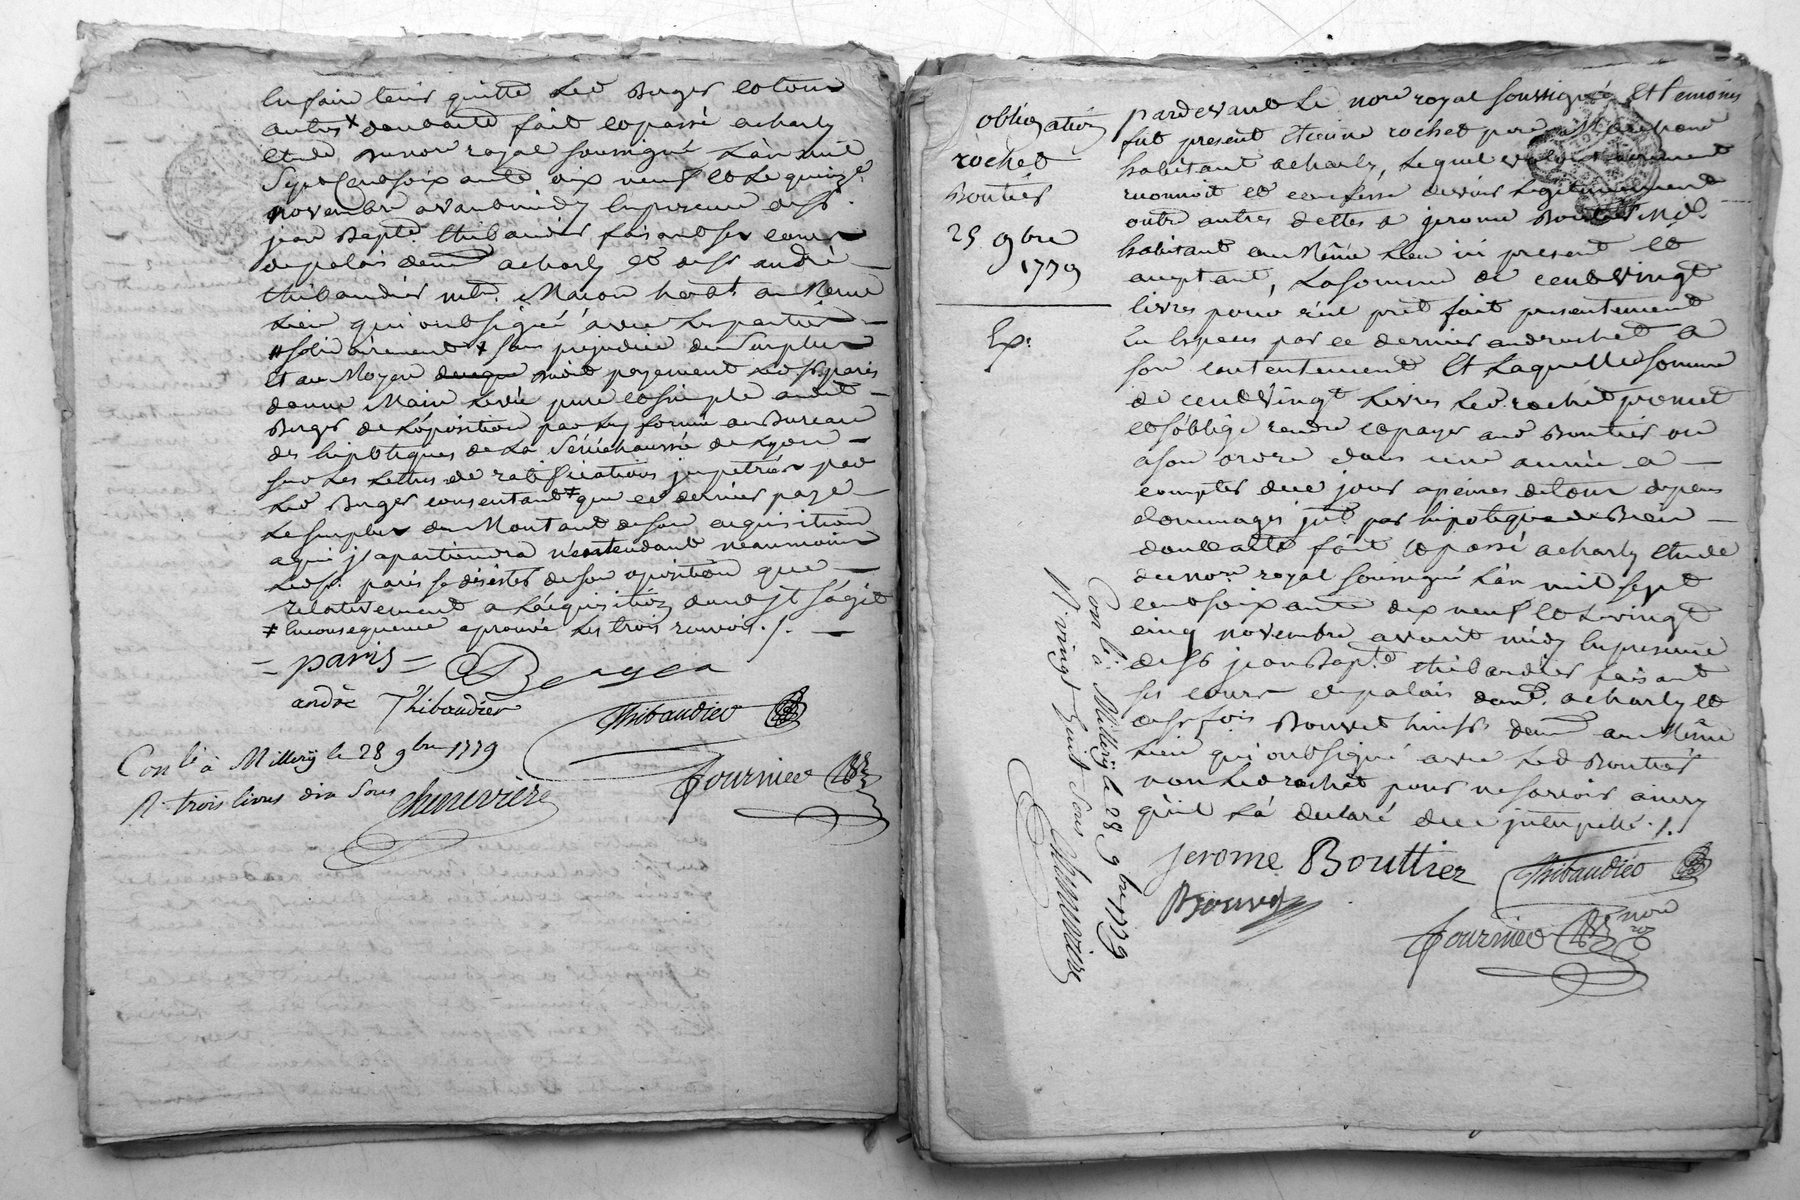 En faire tenir quitte Led Berger et tous
autres x dont acte fait et passé a charly
Etude du nore royal soussigné L'an mil
Sept Cent soix ante dix neuf et Le quinze
novembre avant midy En presence de sr
jean Bapte thibaudier faisant ses cours
de palais demt a charly et de sr andré
thibaudier mtre Maçon habt au Meme
Lieu qui ont signé avec Les parties
# solidairement x sans prejudice du Surplus
Et au Moyen duque dudit payement Led sr paris
donne Main Levée pure et simple audit
Berger de L'oposition par luy formée au Bureau
des hipotèques de La Sénéchaussée de Lyon
sur Les Lettres de ratifications impetrées par
Led Berger consentant # que ce dernier paye
Le surplus du Montant de son acquisition
a qui il apartiendra n'entendant neanmoins
Led sr paris se désister de son oposition que
relativement a L'acquisition dont il s'agit
# En consequence aprouvé Les trois renvois ./.
= paris = Berger
andré Thibaudier Thibaudier
Con lé à Millery le 28 9bre 1779
R. trois livres dix Sous Chenevière
fournier
obligation
rochet
Boutier
25 9bre
1779
Ex:
Pardevant Le nore royal soussigné Et temoins
fut present Etienne rochet pere Marchand
habitant a charly, Lequel volontairement
reconnoit et confesse devoir Legitimement
outre autres dettes a jerome Boutier Md
habitant au Même Lieu ici present et
acceptant, La somme de cent vingt
livres pour réel prêt fait presentement
En Especes par ce dernier aud rochet a
son contentement Et Laquelle somme
de cent vingt Livres Led rochet promet
et s'oblige rendre et payer aud Boutier ou
a son ordre dans une année a
compter de ce jour a peines de tous depens
dommages jnt par hipoteque de Bien
dont acte fait et passé a charly Etude
du nore royal soussigné L'an mil sept
cent soix ante dix neuf et Le vingt
cinq novembre avant midy En presence
de sr jean Bapte thibaudier faisant
ses cours de palais demt a charly et
de sr fois Bouvet huissr demt au Même
Lieu qui ont signé avec Led Boutier
non Led rochet pour ne Savoir ainsy
qu'il L'a declaré de ce jnterpellé ./.
Jerome Bouttier Thibaudier
Bouvet
fournier nore
Con lé à Millery le 28 9bre 1779
R. vingt huit sous Chenevière